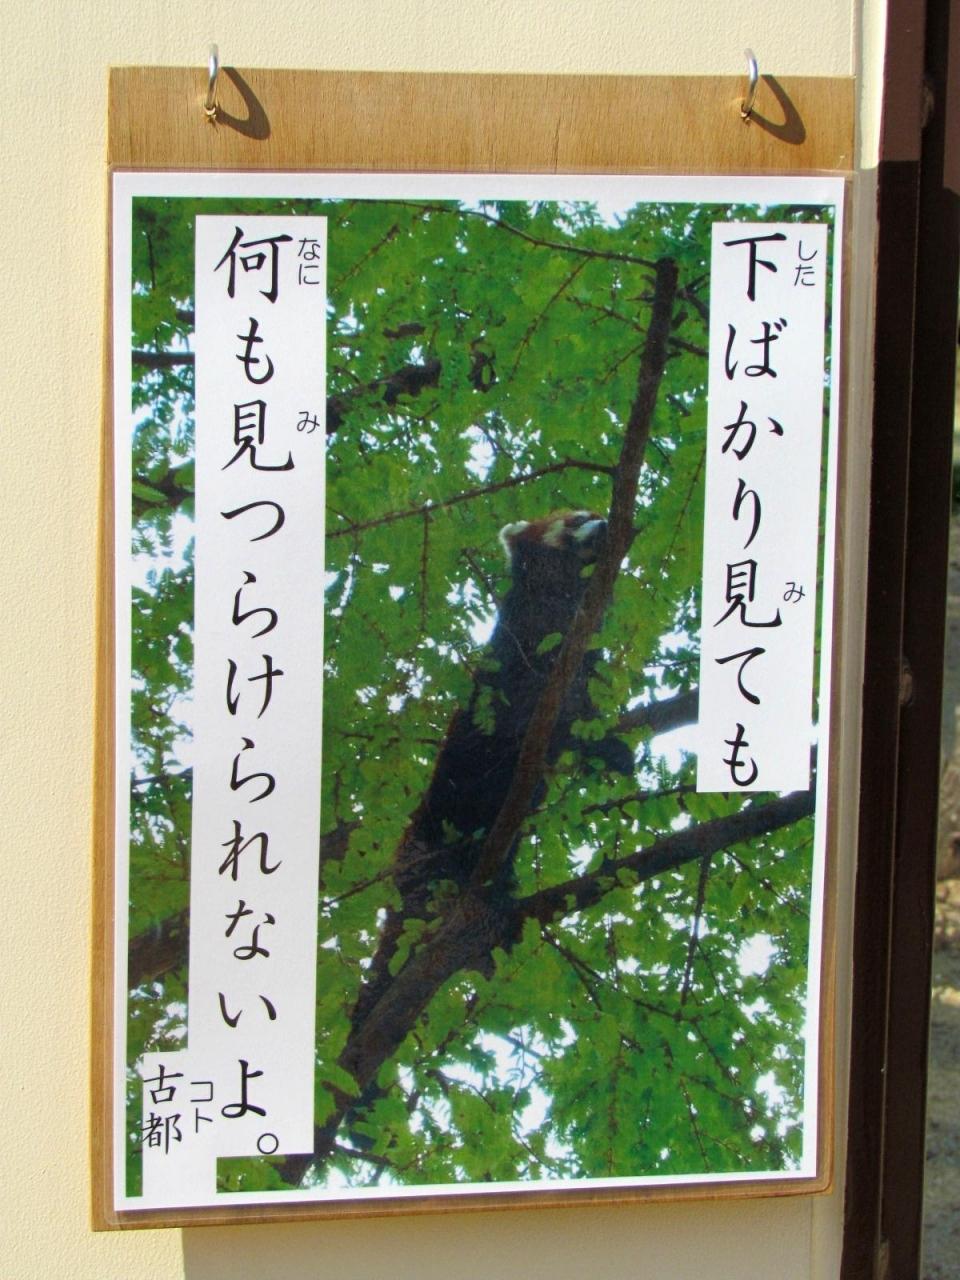 下ばかり見ても
何も見つらけられないよ。
古都
した
み
なに
み
コト